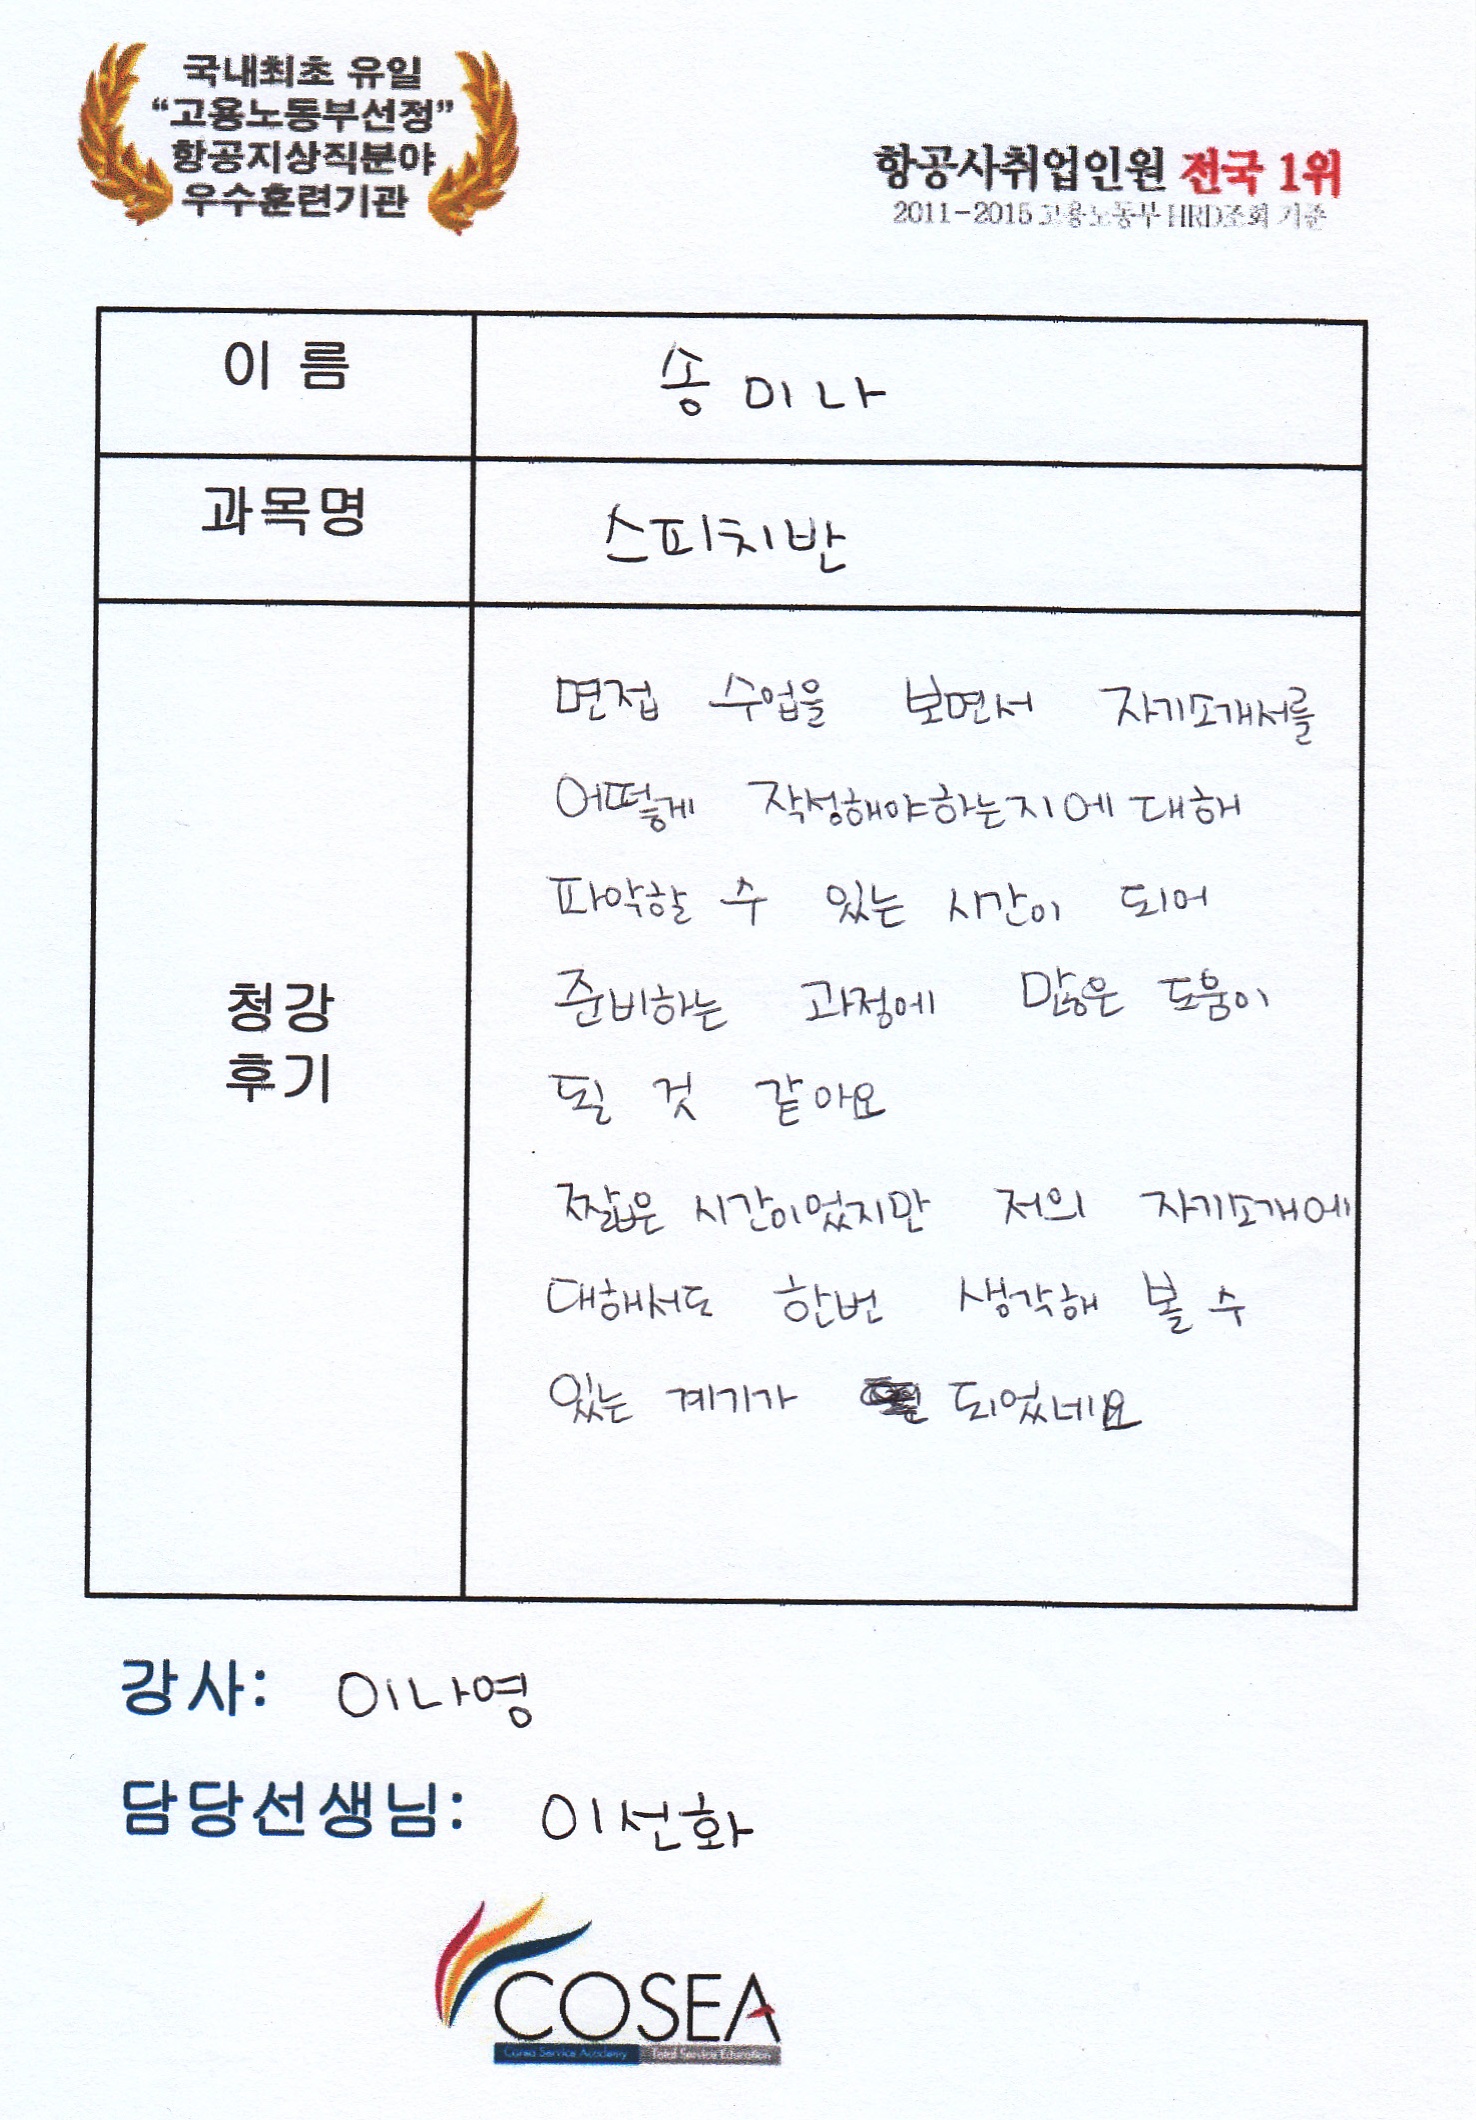 국내최초 유일
“고용노동부선정”
항공지상직분야
우수훈련기관
항공사취업인원 전국 1위
2011-2015 고용노동부 HRD조회 기준
이 름
송미나
과목명
스피치반
청강
후기
면접 수업을 보면서 자기소개서를
어떻게 작성해야하는지에 대해
파악할 수 있는 시간이 되어
준비하는 과정에 많은 도움이
될 것 같아요
짧은 시간이었지만 저의 자기소개에
대해서도 한번 생각해 볼 수
있는 계기가 되었네요
강사: 이나영
담당선생님: 이선화
COSEA
Corea Service Academy Total Service Education